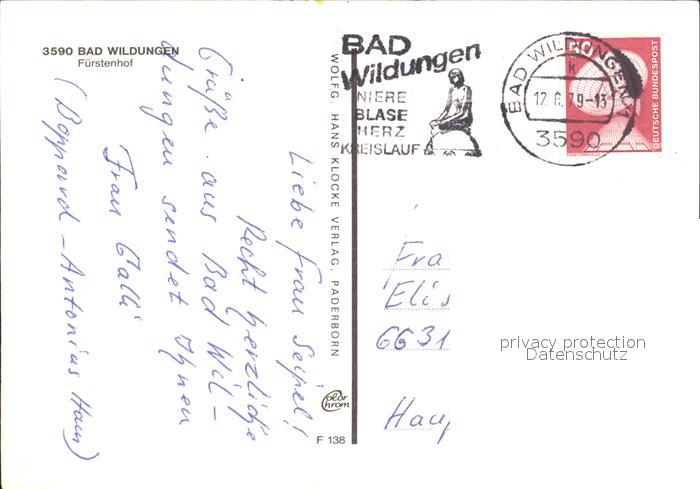 3590 BAD WILDUNGEN
Fürstenhof
Liebe Frau Seipel!
Recht herzliche
Grüße aus Bad Wil-
dungen sendet Ihnen
Frau Galli
(Boppard - Antonius Haus)
WOLFG. HANS KLOCKE VERLAG, PADERBORN
color
chrom
F 138
BAD
Wildungen
NIERE
BLASE
HERZ
KREISLAUF
BAD WILDUNGEN 1
k
12.6.79-13
3590
50
DEUTSCHE BUNDESPOST
Fra
Elis
6631
Hau
privacy protection
Datenschutz